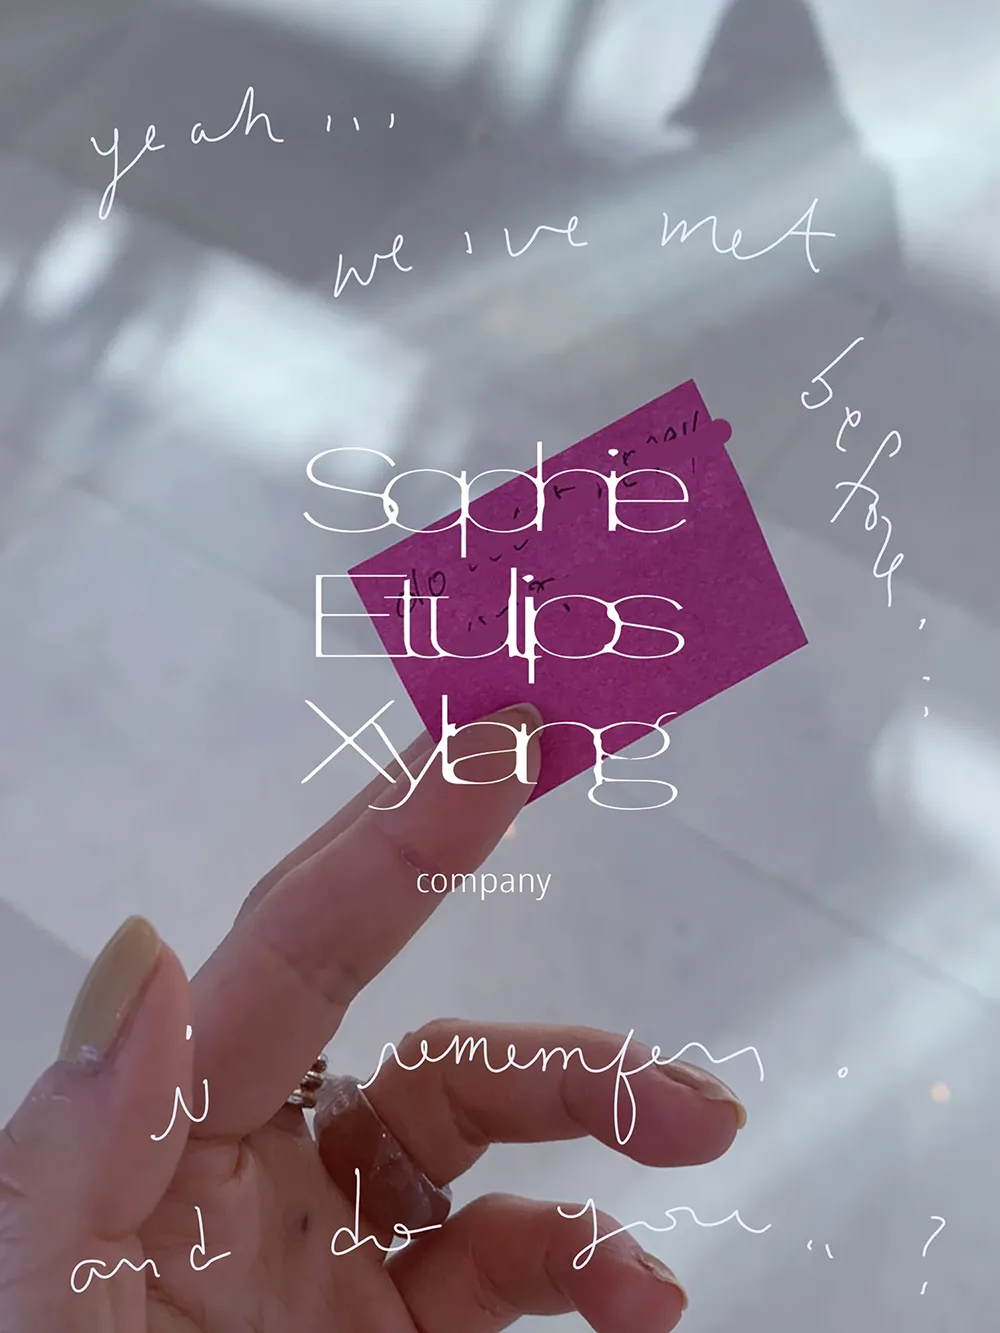 yeah...
we've met
before...
Sophie
Etulips
Xylang
company
i remember.
and do you..?